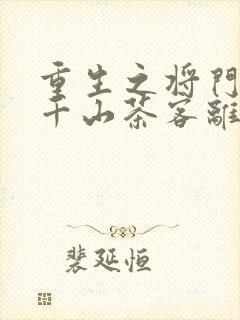 重生之将门
千山茶客離
裴延恒